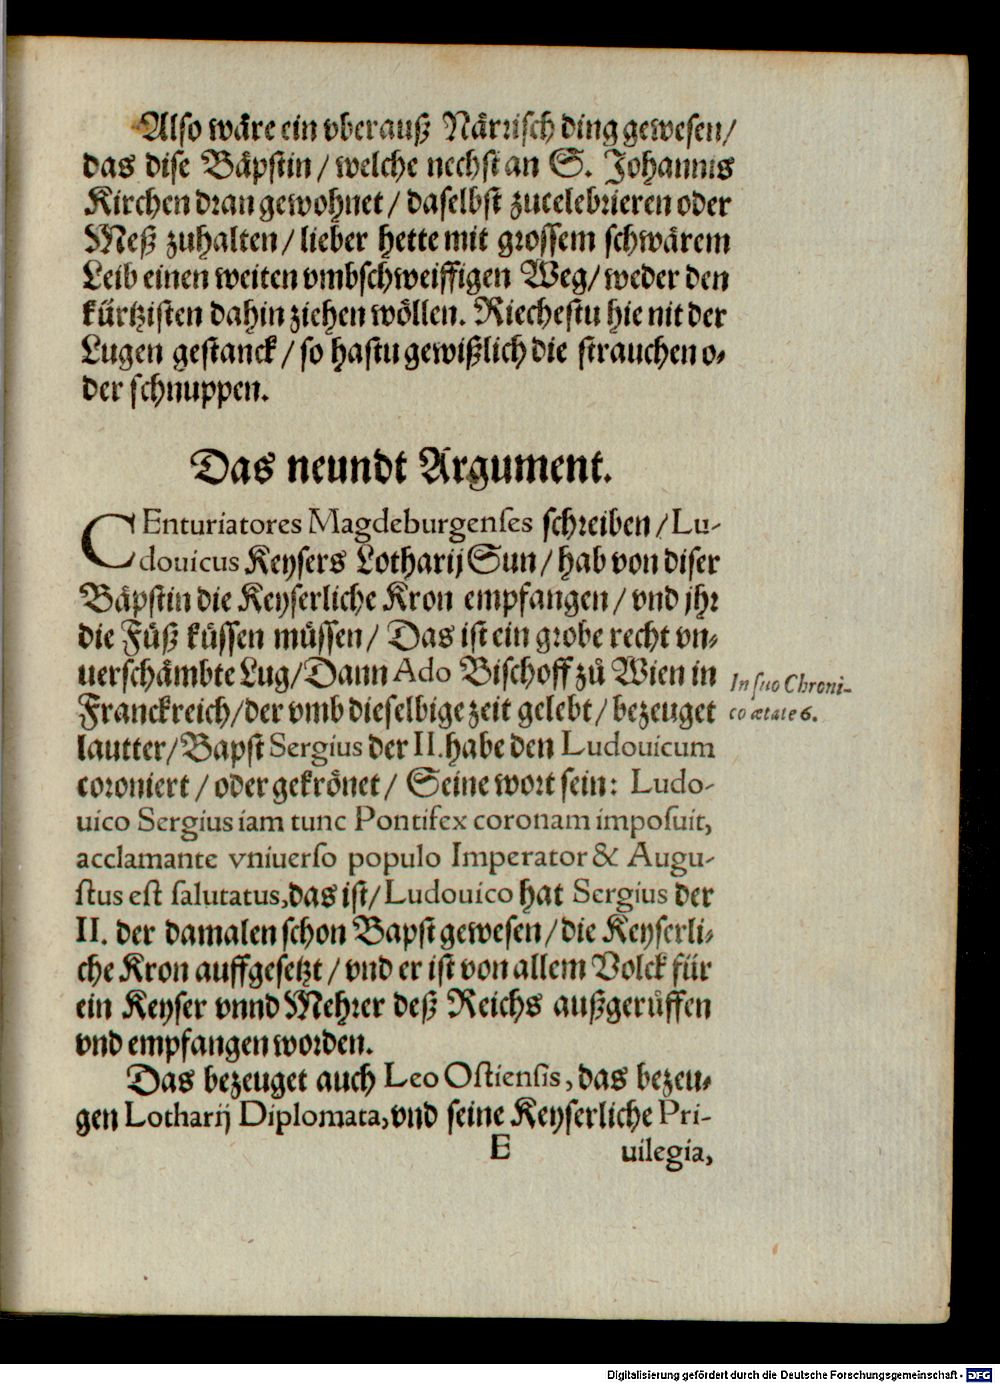 Also wäre ein vberauß Närrisch ding gewesen/
das dise Bäpstin/ welche nechst an S. Johannis
Kirchen dran gewohnet/ daselbst zucelebrieren oder
Meß zuhalten/ lieber hette mit grossem schwärem
Leib einen weiten vmbschweiffigen Weg/ weder den
kürtzisten dahin ziehen wöllen. Riechestu hie nit der
Lugen gestanck/ so hastu gewißlich die strauchen o-
der schnuppen.
Das neundt Argument.
CEnturiatores Magdeburgenses schreiben/ Lu-
douicus Keysers Lotharij Sun/ hab von diser
Bäpstin die Keyserliche Kron empfangen/ vnd jhr
die Füß küssen müssen/ Das ist ein grobe recht vn-
uerschämbte Lug/ Dann Ado Bischoff zů Wien in
Franckreich/ der vmb dieselbige zeit gelebt/ bezeuget
In suo Chroni-
co ætate 6.
lautter/ Bapst Sergius der II. habe den Ludouicum
coroniert/ oder gekrönet/ Seine wort sein: Ludo-
uico Sergius iam tunc Pontifex coronam imposuit,
acclamante vniuerso populo Imperator & Augu-
stus est salutatus, das ist/ Ludouico hat Sergius der
II. der damalen schon Bapst gewesen/ die Keyserli-
che Kron auffgesetzt/ vnd er ist von allem Volck für
ein Keyser vnnd Mehrer deß Reichs außgerůffen
vnd empfangen worden.
Das bezeuget auch Leo Ostiensis, das bezeu-
gen Lotharij Diplomata, vnd seine Keyserliche Pri-
E uilegia,
Digitalisierung gefördert durch die Deutsche Forschungsgemeinschaft - DFG